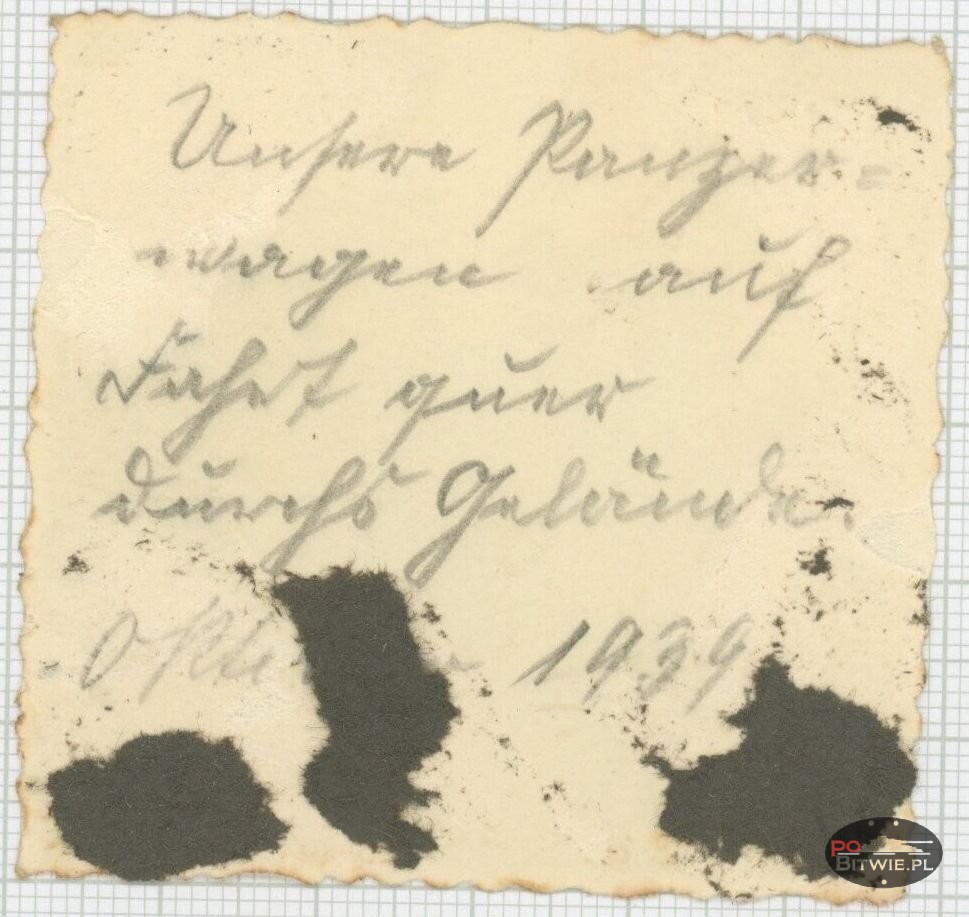 Unsere Panzer=
wagen auf
Fahrt quer
durchs Gelände.
1939
PO
BITWIE.PL